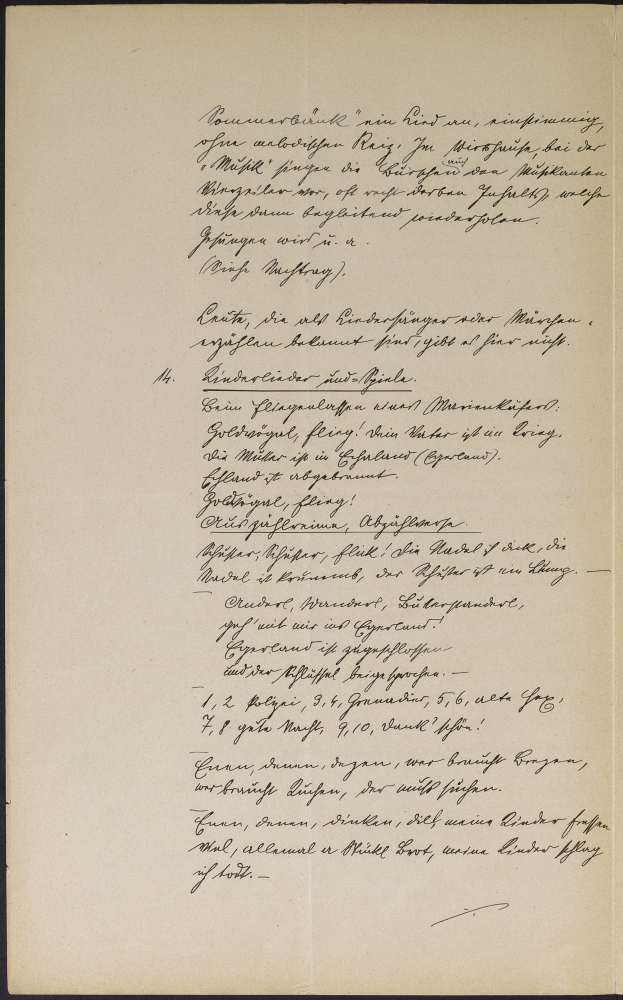 Sommerbänk" ein Lied an, einstimmig,
ohne melodischen Reiz. Im Wirtshause, bei der
„Musik" singen die Burschen auch den Musikanten
Vierzeiler vor, oft recht derben Inhalts, welche
diese dann begleitend wiederholen.
Gesungen wird u. a.
(Siehe Nachtrag).
Leute, die als Liedersänger oder Märchen-
erzähler bekannt sind, gibt es hier nicht.
14. Kinderlieder und=Spiele.
Beim Fliegenlassen eines Marienkäfers:
Goldvögal, flieg! Dein Vater ist im Krieg.
Die Mutter ist in Echaland (Egerland).
Echland ist abgebrannt.
Goldvögal, flieg!
Auszählreime, Abzählverse.
Schuster, Schuster, flick! Die Nadel is dick, die
Nadel is krumm, der Schuster ist ein Lump. —
Anderl, Wanderl, Butterstanderl,
geh' mit mir ins Egerland!
Egerland ist zugeschlossen
und der Schlüssel beigesprochen. —
1, 2 Polizei, 3, 4, Grenadier, 5, 6, alte Hex,
7, 8 gute Nacht, 9, 10, dank' schön!
Enen, denen, dezen, wer braucht Brezen,
wer braucht Kuchen, der muß suchen.
Enen, denen, dinken, dill, meine Kinder fressen
viel, allemal a Stückl Brot, meine Kinder schlag
ich todt. —